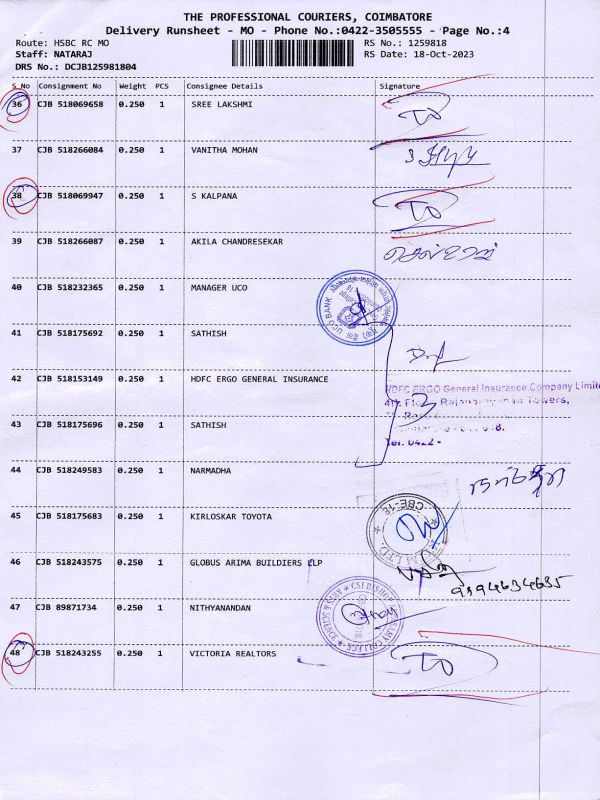 THE PROFESSIONAL COURIERS, COIMBATORE
Delivery Runsheet - MO - Phone No.:0422-3505555 - Page No.:4
Route: HSBC RC MO
RS No.: 1259818
Staff: NATARAJ
RS Date: 18-Oct-2023
DRS No.: DCJB125981804
S No Consignment No Weight PCS Consignee Details Signature
36 CJB 518069658 0.250 1 SREE LAKSHMI
37 CJB 518266084 0.250 1 VANITHA MOHAN
38 CJB 518069947 0.250 1 S KALPANA
39 CJB 518266087 0.250 1 AKILA CHANDRESEKAR
40 CJB 518232365 0.250 1 MANAGER UCO
UCO BANK
41 CJB 518175692 0.250 1 SATHISH
42 CJB 518153149 0.250 1 HDFC ERGO GENERAL INSURANCE
HDFC ERGO General Insurance Company Limite
Towers,
43 CJB 518175696 0.250 1 SATHISH
Tel: 0422 -
44 CJB 518249583 0.250 1 NARMADHA
45 CJB 518175683 0.250 1 KIRLOSKAR TOYOTA
CBE-18
46 CJB 518243575 0.250 1 GLOBUS ARIMA BUILDIERS LLP
9194634635
47 CJB 89871734 0.250 1 NITHYANANDAN
48 CJB 518243255 0.250 1 VICTORIA REALTORS